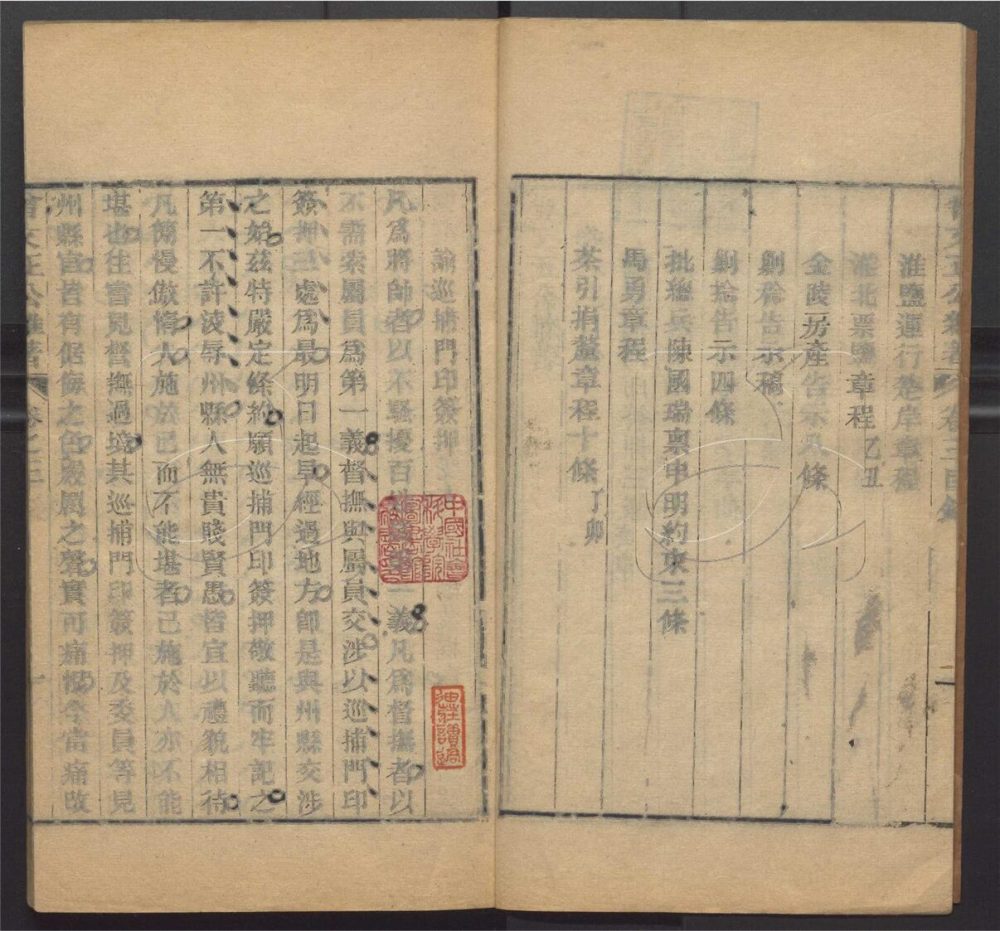 曾文正公雜著 卷三目錄 二
淮鹽運行楚岸章程
淮北票鹽章程 乙丑
金陵房產告示八條
剿捻告示稿
剿捻告示四條
批總兵陳國瑞稟申明約束三條
馬勇章程
茶引捐釐章程十條 丁卯
諭巡捕門印簽押
凡為將帥者以不騷擾百姓為第一義凡為督撫者以
不需索屬員為第一義督撫與屬員交涉以巡捕門印
簽押三處為最明日起早經過地方即是與州縣交涉
之始茲特嚴定條約願巡捕門印簽押敬聽而牢記之
第一不許凌辱州縣人無貴賤賢愚皆宜以禮貌相待
凡簡慢傲惰人施於己而不能堪者己施於人亦不能
堪也往嘗見督撫過境其巡捕門印簽押及委員等見
州縣官皆有倨侮之色嚴厲之聲實可痛恨今當痛改
曾文正公雜著 卷之三 一
中國社會